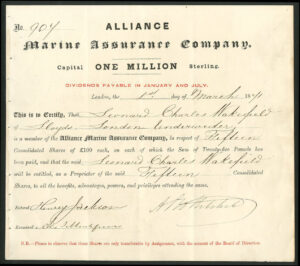 No. 907
ALLIANCE
Marine Assurance Company.
Capital ONE MILLION Sterling.
DIVIDENDS PAYABLE IN JANUARY AND JULY.
London, the 1st day of March 18
This is to Certify, That Leonard Charles Wakefield
of Lloyds London Underwriter
is a Member of the Alliance Marine Assurance Company, in respect of Fifteen
Consolidated Shares of £100 each, on each of which the Sum of Twenty-five Pounds has
been paid, and that the said Leonard Charles Wakefield
will be entitled, as a Proprietor of the said Fifteen Consolidated
Shares, to all the benefits, advantages, powers, and privileges attending the same.
Entered Henry Jackson
Examined
N.B.—Please to observe that these Shares are only transferable by Assignment, with the consent of the Board of Direction.